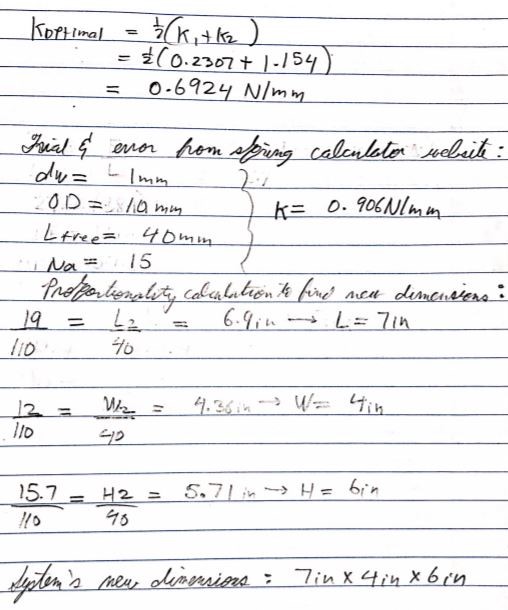 Koptimal = ½(K1+K2)
= ½(0.2307 + 1.154)
= 0.6924 N/mm
Trial & error from spring calculator website:
dw = 1mm
OD = 10 mm
K = 0.906N/mm
Lfree = 40mm
Na = 15
Proportionality calculation to find new dimensions:
19/110 = L2/40 = 6.9in → L = 7in
12/110 = W2/40 = 4.36in → W = 4in
15.7/110 = H2/40 = 5.71in → H = 6in
System's new dimensions: 7in x 4in x 6in